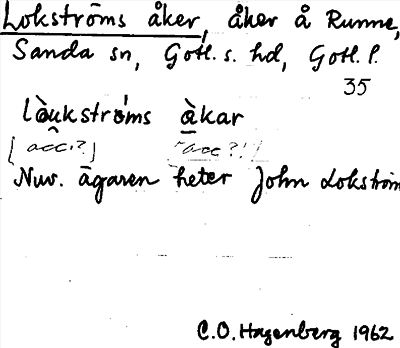 Lokströms åker, åker å Runne,
Sanda sn, Gotl. s. hd, Gotl. l.
35
làukstròms àkar
[acc.?] [acc?!]
Nuv. ägaren heter John Lokström
C.O. Hagenberg 1962